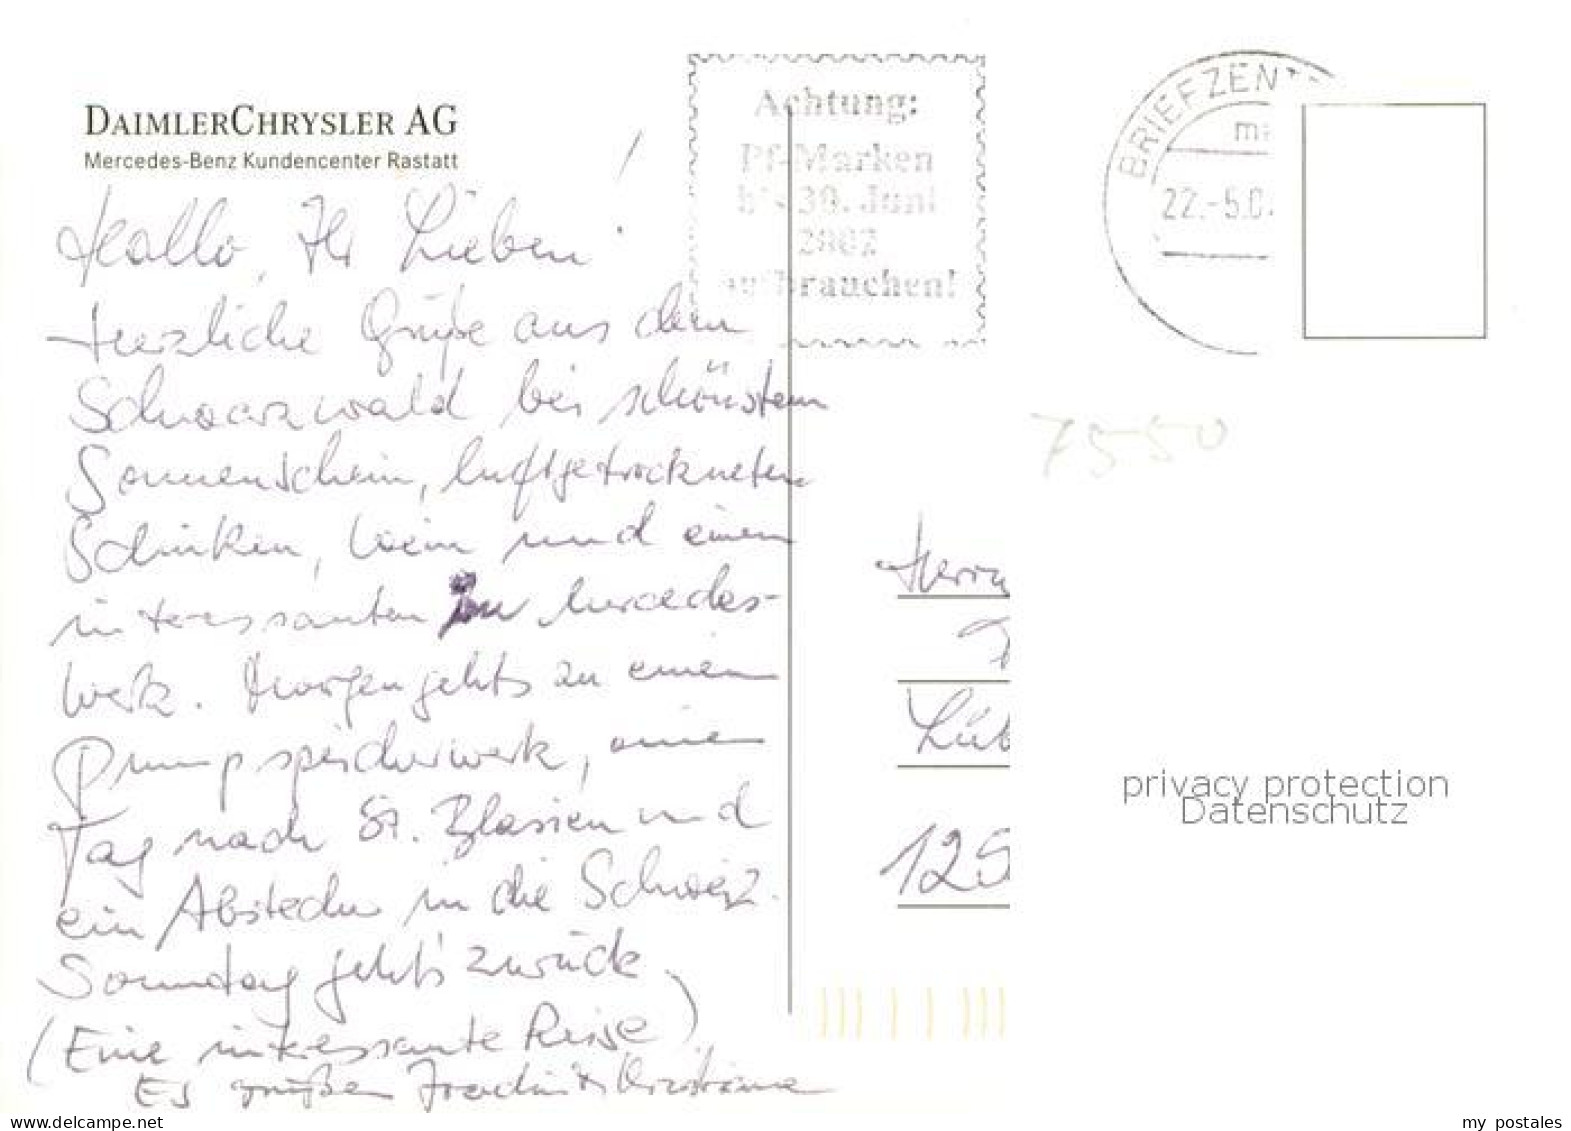 DAIMLERCHRYSLER AG
Mercedes-Benz Kundencenter Rastatt
Hallo, Ihr Lieben!
Herzliche Grüße aus dem
Schwarzwald bei schönstem
Sonnenschein, luftgetrockneten
Schinken, Wein und einem
interessanten Mercedes-
Werk. Morgen gehts zu einem
Pumpspeicherwerk, einen
Tag nach St. Blasien und
ein Abstecher in die Schweiz.
Sonntag geht's zurück.
(Eine interessante Reise)
Es grüßen Joachim & Christiane
Achtung:
Pf-Marken
bis 30. Juni
2002
aufbrauchen!
BRIEFZENT
22.-5.0
7550
Herrn
Lüb
125
privacy protection
Datenschutz
www.delcampe.net
my_postales